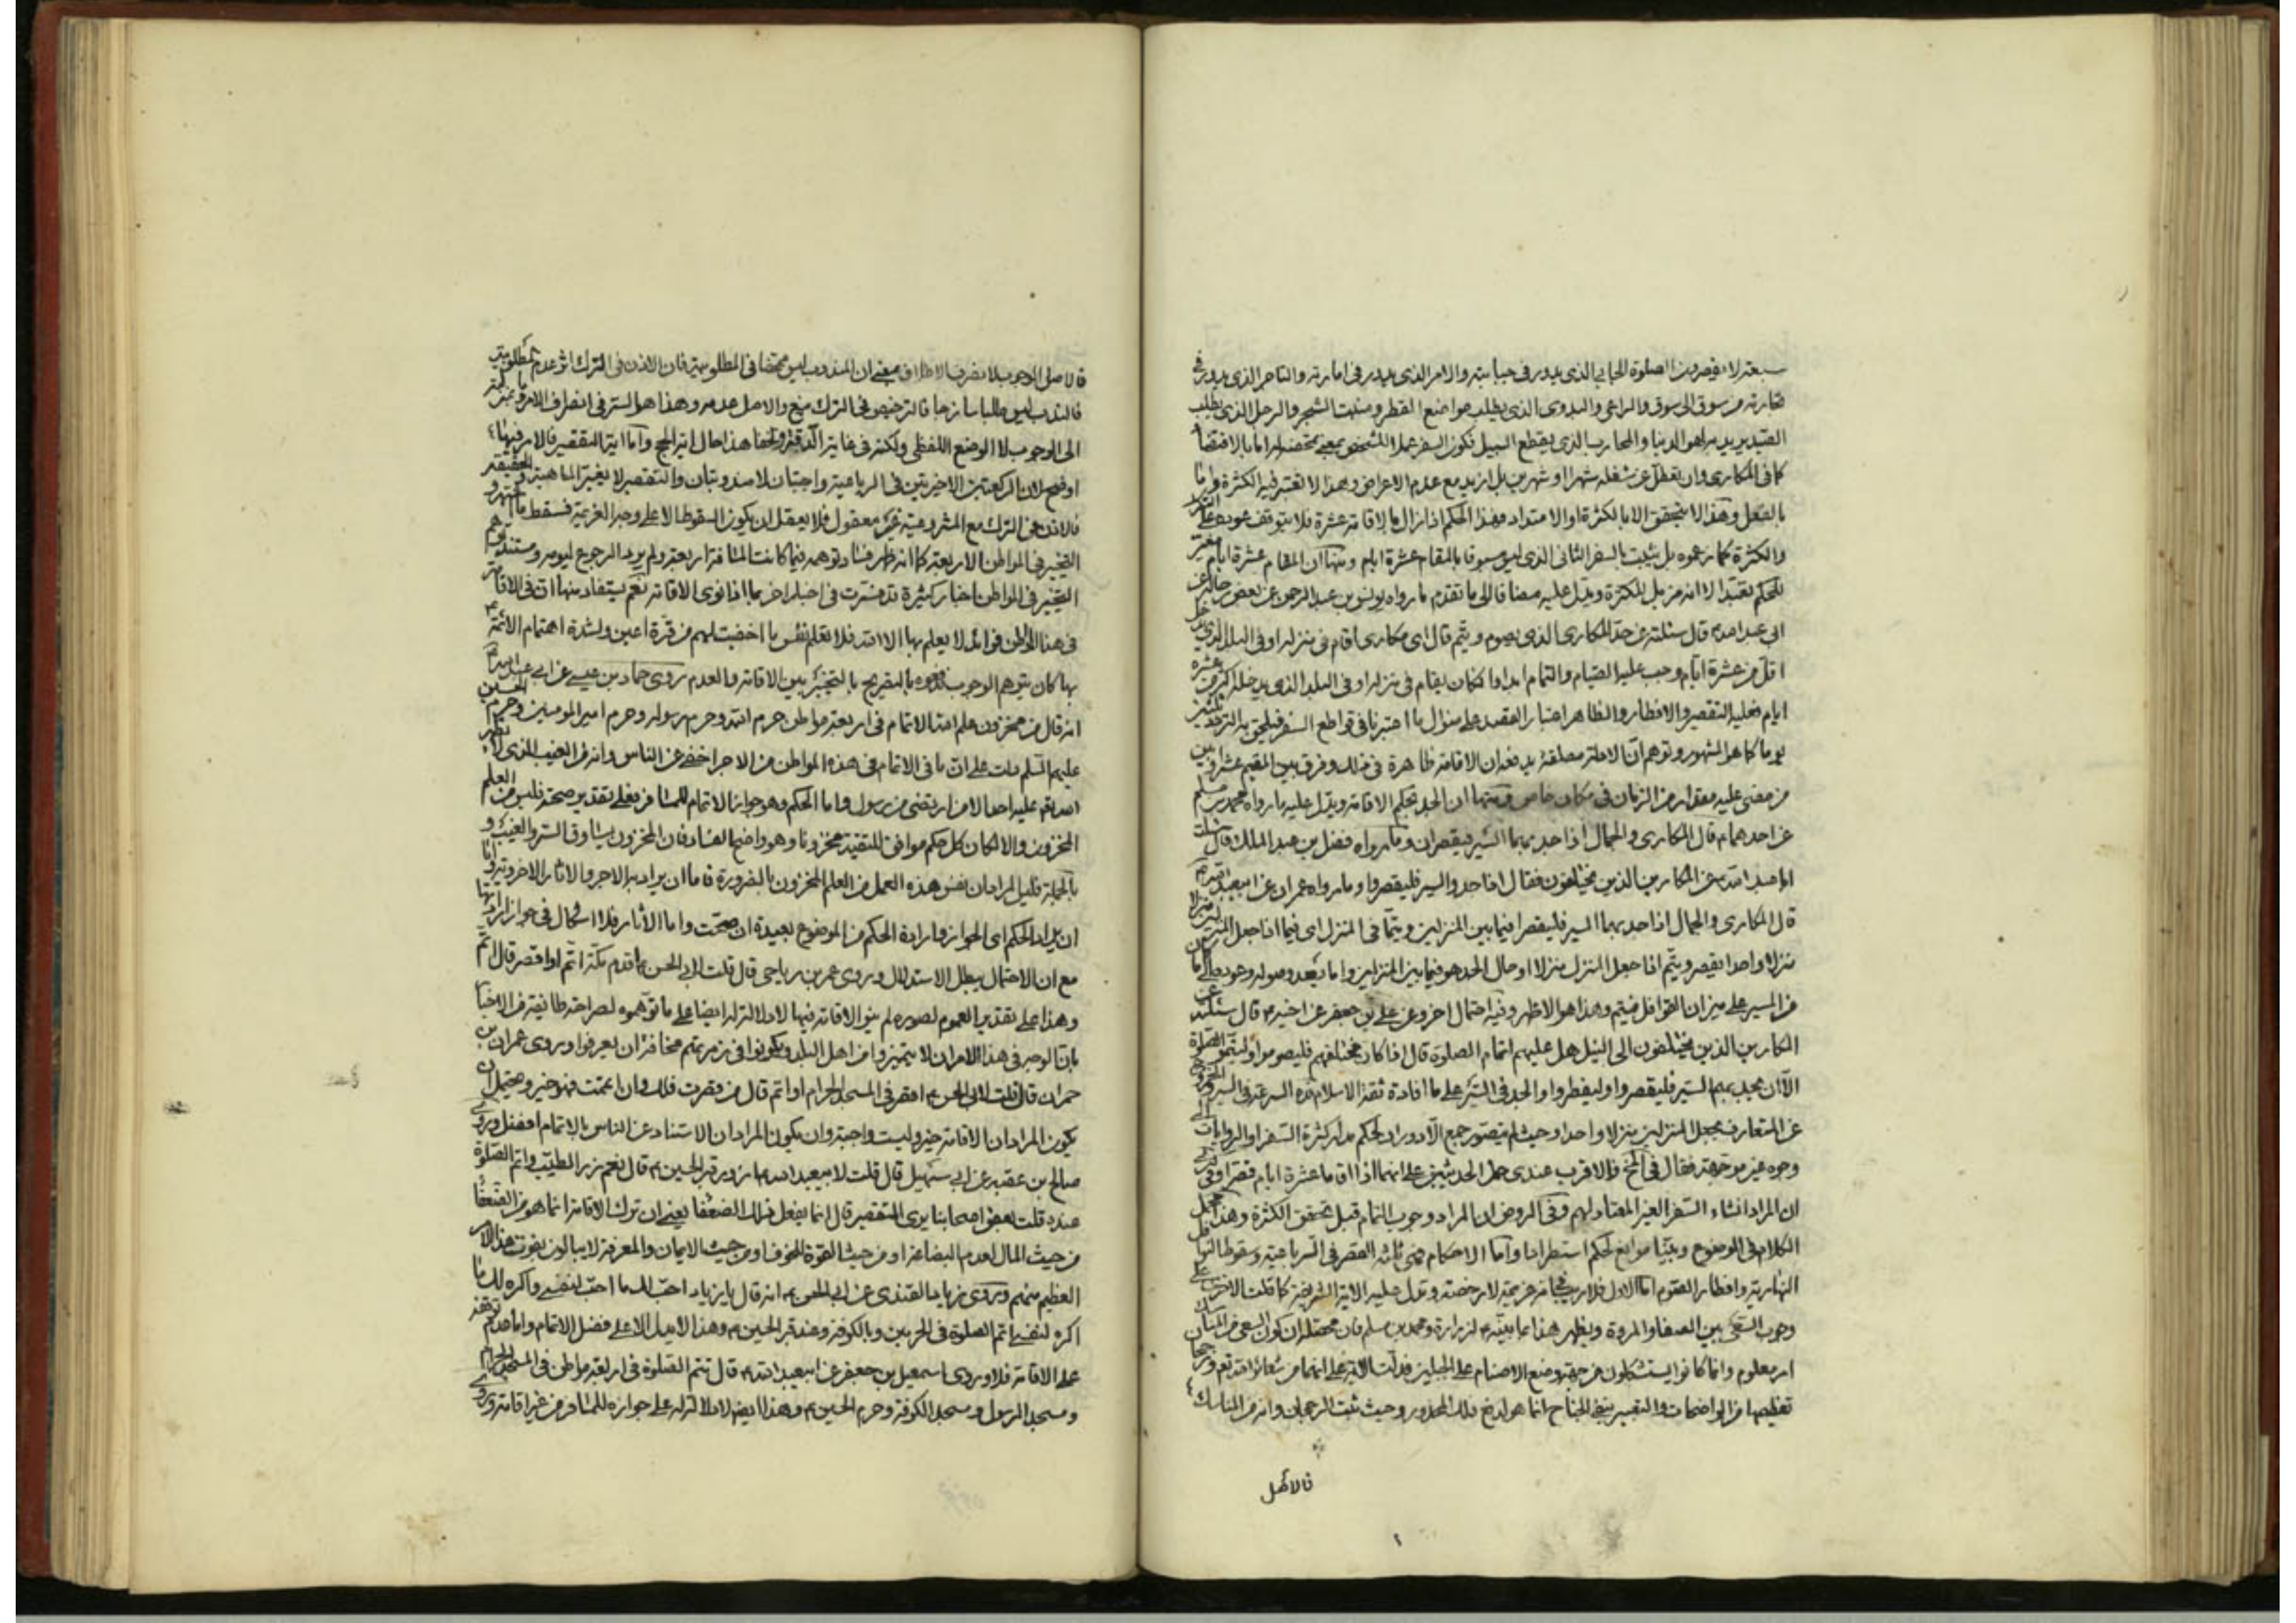 سبعة لا يقصرون الصلوة الجابي الذي يدور في جبايته والامير الذي يدور في امارته والتاجر الذي يدور في
تجارته من سوق الى سوق والراعي والبدوي الذي يطلب مواضع القطر ومنبت الشجر والرجل الذي يطلب
الصيد يريد به لهو الدنيا والمحارب الذي يقطع السبيل فكون السفر عملا للشخص بمعنى
كما في المكاري وان تعطل عن شغله شهرا او شهرين بل ازيد مع عدم الاعراض وهذا لا تعتبر فيه الكثرة واما
بالفعل وهذا لا يتحقق الا بالكثرة او الامتداد فهذا الحكم اذا زال بالاقامة عشرة فلا يتوقف عوده على
والكثرة كما زعموه بل يثبت بالسفر الثاني الذي ليس مسبوقا بالمقام عشرة ايام ومنها ان المقام عشرة ايام
للحكم تعبدا لا انه مزيل للكثرة ويدل عليه مضافا الى ما تقدم ما رواه يونس بن عبد الرحمن عن بعض رجاله عن
ابي عبد الله قال سئلته عن حد المكاري الذي يصوم ويتم قال اي مكاري اقام في منزله او في البلد الذي يدخل
اقل من عشرة ايام وجب عليه الصيام والتمام ابدا وان كان مقامه في منزله او في البلد الذي يدخله اكثر من عشرة
ايام فعليه التقصير والافطار والظاهر اعتبار القصد على منوال ما اعتبرنا في قواطع السفر فيلحق به التردد ثلثين
يوما كما هو المشهور وتوهم ان الادلة مطلقة يدفعه ان الاقامة ظاهرة في ذلك وفرق بين المقيم عشرا وبين
من مضى عليه مقدار من الزمان في مكان خاص ومنها ان الجد بحكم الاقامة ويدل عليه ما رواه محمد بن مسلم
عن احدهما قال المكاري والجمال اذا جد بهما السير فليقصران وما رواه فضل بن عبد الملك قال سئلت
ابا عبد الله عن المكارين الذين يختلفون فقال اذا جدوا السير فليقصروا وما رواه عمران عن ابيعبد الله
قال المكاري والجمال اذا جد بهما السير فليقصرا فيما بين المنزلين ويتما في المنزل اي فيما اذا جعل المنزلين منزلا
منزلا واحدا يقصر ويتم اذا جعل المنزل منزلا او حال الجد هو فيما بين المنزلين واما بعد وصوله وعوده الى ما كان
من السير على ميزان القوافل فيتم وهذا هو الاظهر وفيه احتمال اخر وعن علي بن جعفر عن اخيه قال سئلته عن
المكارين الذين يختلفون الى النيل هل عليهم اتمام الصلوة قال اذا كان مختلفهم فليصوموا وليتموا الصلوة
الا ان يجد بهم السير فليقصروا وليفطروا والجد في السير على ما افاده ثقة الاسلام قده السرعة في السير
عن المتعارف بجعل المنزلين منزلا واحدا وحيث لم يتصور جمع الادوران الحكم مدار كثرة السفر او الروايات الى
وجوه غير موجهة فقال في المخ فالاقرب عندي حمل الحديثين على انهما اذا اقاما عشرة ايام قصرا وفي
ان المراد انشاء السفر الغير المعتاد لهم وفي الروض ان المراد وجوب التمام قبل تحقق الكثرة وهذا مجمل
الكلام في الموضوع وبينا موانع الحكم استطرادا واما الاحكام فهي ثلثة القصر في الرباعية وسقوط النوافل
النهارية وافطار الصوم اما الاول فلا ريب في انه عزيمة لا رخصة وتدل عليه الاية الشريفة كما قلت الاية على
وجوب السعي بين الصفا والمروة ويظهر هذا مما بينه لزرارة ومحمد بن مسلم فان محصله ان كون السعي من المناسك
امر معلوم وانما كانوا يستشكلون من جهة وضع الاصنام على الجبلين فدلت الاية على انهما من شعائر الله تعالى ورجحان
تعظيمها من الواضحات والتعبير بنفي الجناح انما هو لدفع ذلك المحذور وحيث ثبت الرجحان وانه من المناسك
فالاصل
فالاصل الوجوب لانصراف الاطلاق بمعنى ان المندوب ليس محضا في المطلوبية فان الاذن في الترك اثر عدم المطلوبية
فالندب ليس طلبا ساذجا فالترخيص في الترك منع والاصل عدمه وهذا هو السر في انصراف الامر
الى الوجوب لا الوضع اللفظي ولكنه في غاية الدقة والخفا هذا حال اية الحج واما اية التقصير فالامر فيها
اوضح لان الركعتين الاخيرتين في الرباعية واجبتان لا مندوبتان والتقصير لا يغير الماهية والحقيقة
فالاذن في الترك مع المشروعية غير معقول فلا يعقل ان يكون السقوط الا على وجه العزيمة فسقط ما اشتهر
التخيير في المواطن الاربعة كما انه ظهر فساد توهمه فيما كانت المسافة اربعة ولم يرد الرجوع ليومه ومستند توهم
التخيير في المواطن اخبار كثيرة قد فسرت في اخبار اخر بما اذا نوى الاقامة نعم يستفاد منها ان في الاقامة
في هذا المواطن فوائد لا يعلم بها الا الله فلا تعلم نفس ما اخفيت لهم من قرة اعين ولشدة اهتمام الائمة
بها كان يتوهم الوجوب فدفعوه بالتصريح بالتخيير بين الاقامة والعدم روى حماد بن عيسى عن ابي عبد الله
انه قال من مخزون علم الله الاتمام في اربعة مواطن حرم الله وحرم رسوله وحرم امير المومنين وحرم الحسين
عليهم السلم دلت على ان ما في الاتمام في هذه المواطن من الاجر اخفى عن الناس وانه من الغيب الذي لا يظهر
الله تعالى عليه احدا الا من ارتضى من رسول واما الحكم وهو جواز الاتمام للمسافر فعلى تقدير صحته فليس من العلم
المخزون والا لكان كل حكم موافق للتقية مخزونا وهو واضح الفساد فان المخزون يساوق السر والغيب و
بالجملة فليس المراد ان نفس هذه العمل من العلم المخزون بالضرورة فاما ان يراد به الاجر والاثار الاخروية واما
ان يراد الحكم اي الجواز وارادة الحكم من الموضوع بعيدة ان صحت واما الاثار فلا اشكال في جواز ارادتها
مع ان الاحتمال يبطل الاستدلال وروى عمر بن رياح قال قلت لابي الحسن اقدم مكة اتم او اقصر قال اتم
وهذا على تقدير العموم لصورة لم ينو الاقامة فيها لا دلالة له ايضا على ما توهموه لصراحة طائفة من الاخبار
بان الوجه في هذا الامر ان لا يتميزوا من اهل البلد ويكونوا في زمرتهم مخافة ان يعرفوا وروى عمران بن
حمران قال قلت لابي الحسن اقصر في المسجد الحرام او اتم قال من قصرت فلك وان اتممت فهو خير ويحتمل ان
يكون المراد ان الاقامة خير وليست واجبة وان يكون المراد ان الاستناد عن الناس بالاتمام افضل وروى
صالح بن عقبة عن ابي سهيل قال قلت لابيعبد الله ازور قبر الحسين قال نعم زر الطيب واتم الصلوة
عنده قلت بعض اصحابنا يرى التقصير قال انما يفعل ذلك الضعفا يعني ان ترك الاقامة انما هو من الضعفا
من حيث المال لعدم البضاعة او من حيث القوة للخوف او من حيث الايمان والمعرفة لا يبالون بفوت هذا الامر
العظيم منهم وروى زياد القندي عن ابي الحسن انه قال يا زياد احب لك ما احب لنفسي واكره لك ما
اكره لنفسي اتم الصلوة في الحرمين وبالكوفة وعند قبر الحسين وهذا لا يدل الا على فضل الاتمام واما عدم توقفه
على الاقامة فلا وروى اسمعيل بن جعفر عن ابيعبد الله قال تتم الصلوة في اربعة مواطن في المسجد الحرام
ومسجد الرسول ومسجد الكوفة وحرم الحسين وهذا ايضا لا دلالة له على جوازه للمسافر من غير اقامة وروى